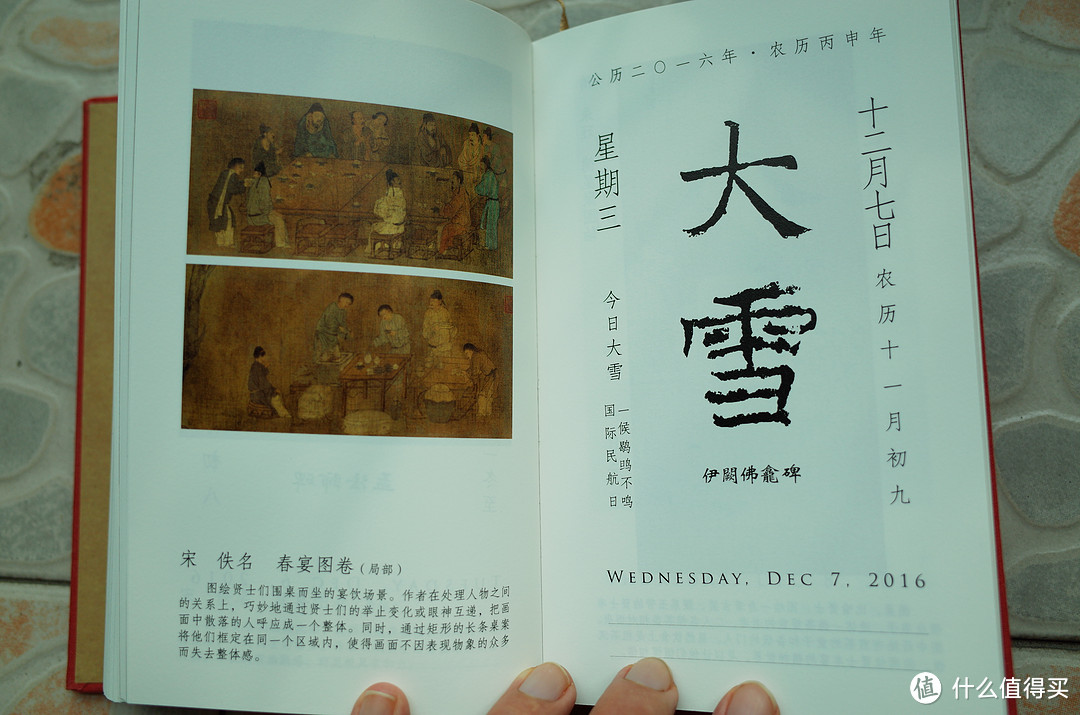 宋 佚名 春宴图卷(局部)
图绘贤士们围桌而坐的宴饮场景。作者在处理人物之间
的关系上，巧妙地通过贤士们的举止变化或眼神互递，把画
面中散落的人呼应成一个整体。同时，通过矩形的长条桌案
将他们框定在同一个区域内，使得画面不因表现物象的众多
而失去整体感。
公历二〇一六年·农历丙申年
十二月七日
农历十一月初九
大雪
伊闕佛龕碑
星期三
今日大雪
一候鹖鴠不鸣
国际民航日
WEDNESDAY, DEC 7, 2016
值 什么值得买